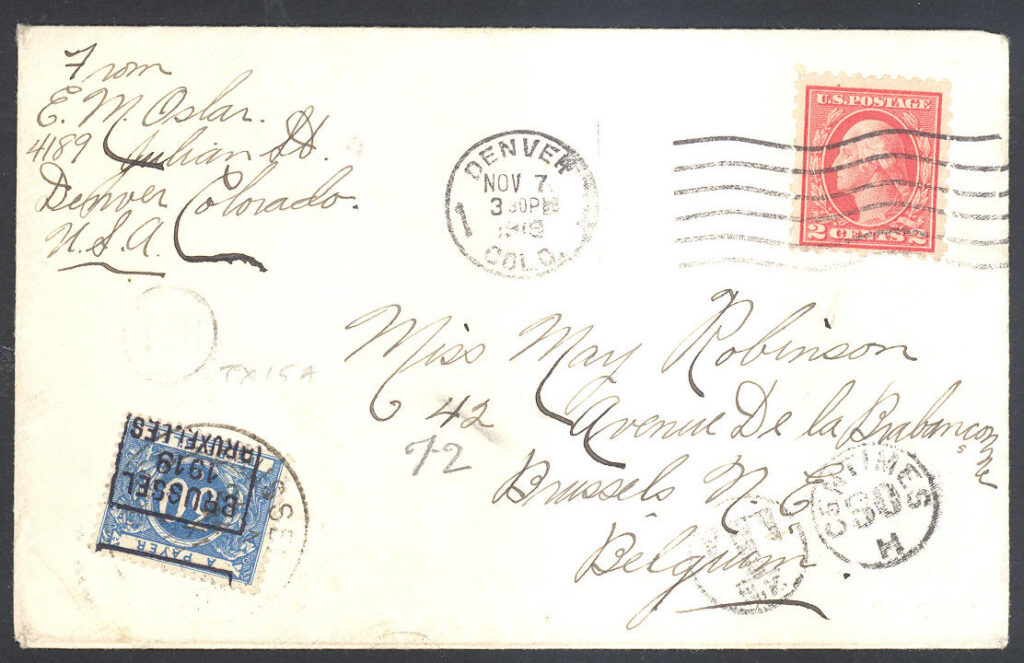 From
E. M. Oslar.
4189 Julian St.
Denver Colorado.
U.S.A.
DENVER
NOV 7
3 30PM
1919
COLO.
1
U.S. POSTAGE
2 CENTS 2
Miss May Robinson
42 Avenue De la Brabançonne
72
Brussels N. E.
Belgium
TX15A
BRUSSEL
1919
(BRUXELLES)
A PAYER
CENTIMES
H